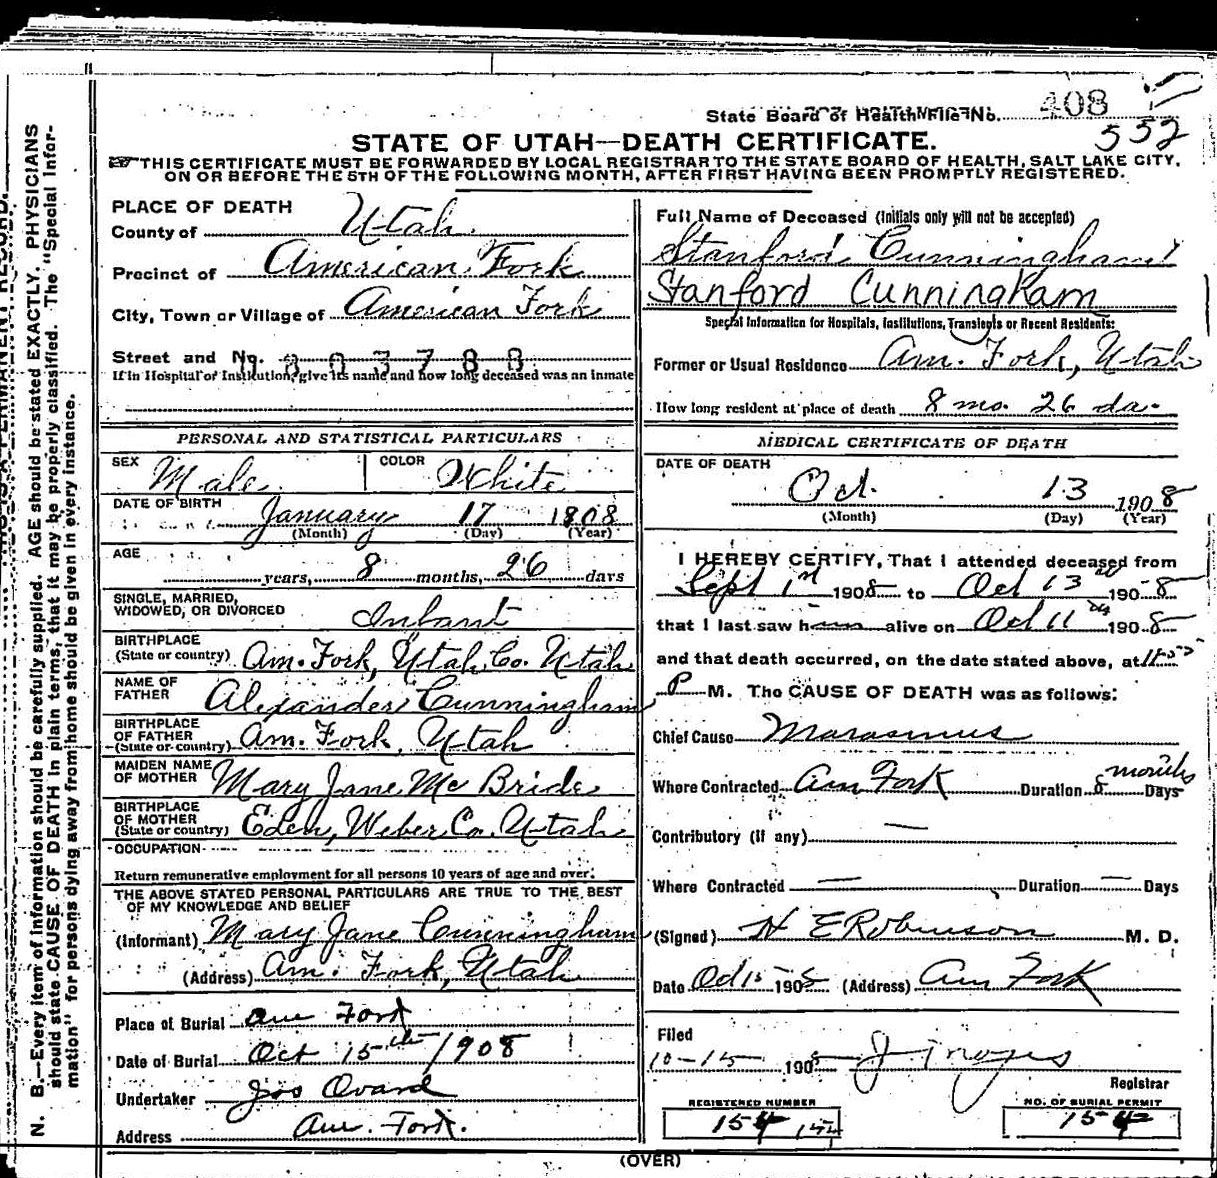 State Board of Health File No. 408
552
STATE OF UTAH—DEATH CERTIFICATE.
THIS CERTIFICATE MUST BE FORWARDED BY LOCAL REGISTRAR TO THE STATE BOARD OF HEALTH, SALT LAKE CITY,
ON OR BEFORE THE 5TH OF THE FOLLOWING MONTH, AFTER FIRST HAVING BEEN PROMPTLY REGISTERED.
PLACE OF DEATH
County of Utah
Precinct of American Fork
City, Town or Village of American Fork
Street and No. 803788
If in Hospital or Institution, give its name and how long deceased was an inmate
PERSONAL AND STATISTICAL PARTICULARS
SEX Male COLOR White
DATE OF BIRTH January 17 1908
(Month) (Day) (Year)
AGE
years, 8 months, 26 days
SINGLE, MARRIED,
WIDOWED, OR DIVORCED Infant
BIRTHPLACE
(State or country) Am. Fork, Utah Co. Utah
NAME OF
FATHER Alexander Cunningham
BIRTHPLACE
OF FATHER
(State or country) Am. Fork, Utah
MAIDEN NAME
OF MOTHER Mary Jane Mc Bride
BIRTHPLACE
OF MOTHER
(State or country) Eden, Weber Co. Utah
OCCUPATION
Return remunerative employment for all persons 10 years of age and over.
THE ABOVE STATED PERSONAL PARTICULARS ARE TRUE TO THE BEST
OF MY KNOWLEDGE AND BELIEF
(Informant) Mary Jane Cunningham
(Address) Am. Fork, Utah
Place of Burial Am Fork
Date of Burial Oct 15th 1908
Undertaker Jos Ovard
Address Am. Fork.
Full Name of Deceased (Initials only will not be accepted)
Stanford Cunningham
Stanford Cunningham
Special Information for Hospitals, Institutions, Transients or Recent Residents:
Former or Usual Residence Am. Fork, Utah
How long resident at place of death 8 mo. 26 da.
MEDICAL CERTIFICATE OF DEATH
DATE OF DEATH
Oct. 13 1908
(Month) (Day) (Year)
I HEREBY CERTIFY, That I attended deceased from
Sept 1st 1908 to Oct 13 1908
that I last saw him alive on Oct 11 1908
and that death occurred, on the date stated above, at
P M. The CAUSE OF DEATH was as follows:
Chief Cause Marasmus
Where Contracted Am Fork Duration 8 months Days
Contributory (if any) —
Where Contracted — Duration — Days
(Signed) H E Robinson M. D.
Date Oct 15 1908 (Address) Am Fork
Filed
10-15 1908 J F Noyes
Registrar
REGISTERED NUMBER
154 154
NO. OF BURIAL PERMIT
154
(OVER)
N. B.—Every item of information should be carefully supplied. AGE should be stated EXACTLY. PHYSICIANS
should state CAUSE OF DEATH in plain terms, that it may be properly classified. The "Special Infor-
mation" for persons dying away from home should be given in every instance.